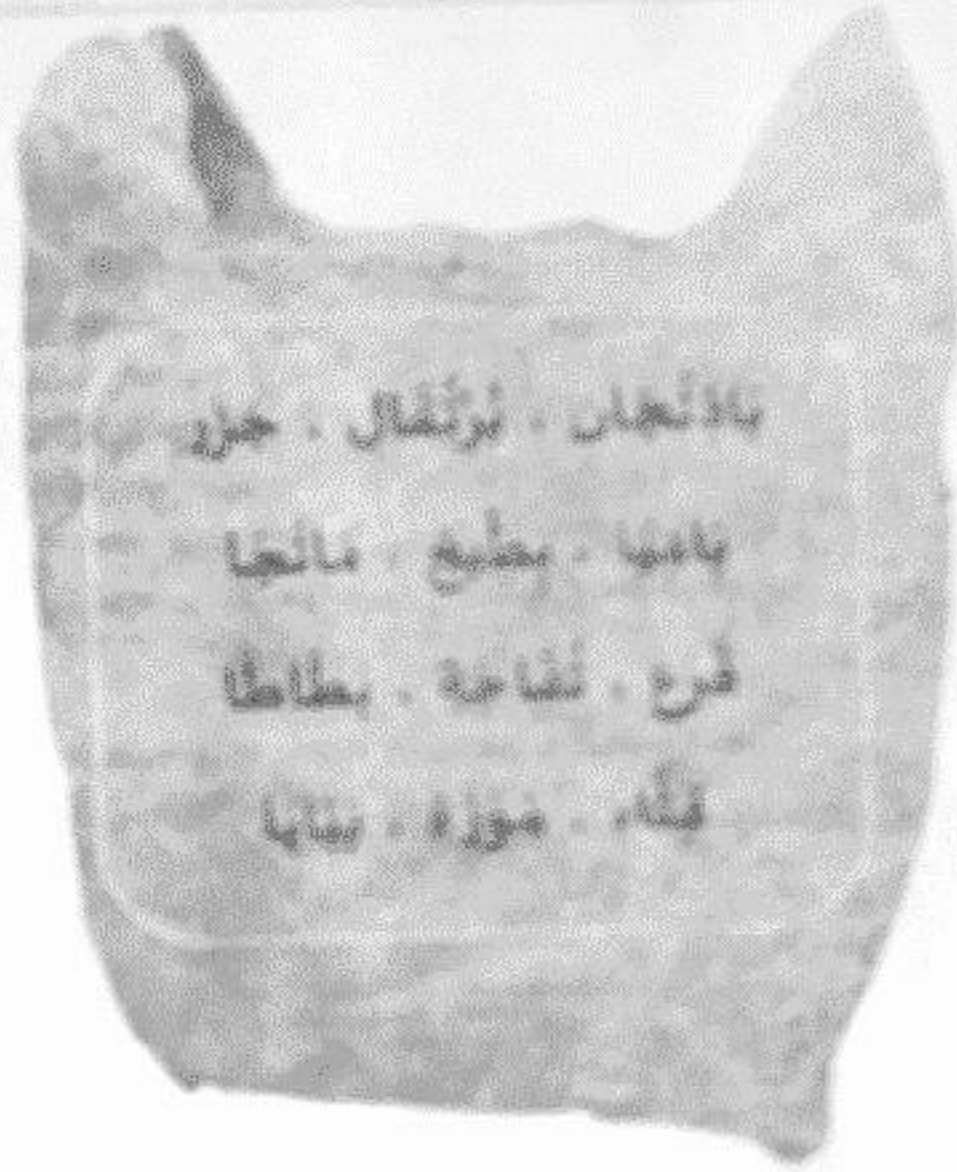 بَاذِنْجَان ، بُرْتُقَال ، جزر
بَامْيَا ، بطِّيخ ، مَانْجَا
قَرْع ، تُفَّاحَة ، بطَاطَا
قِثَّاء ، مَوْزَة ، بَبَايَا